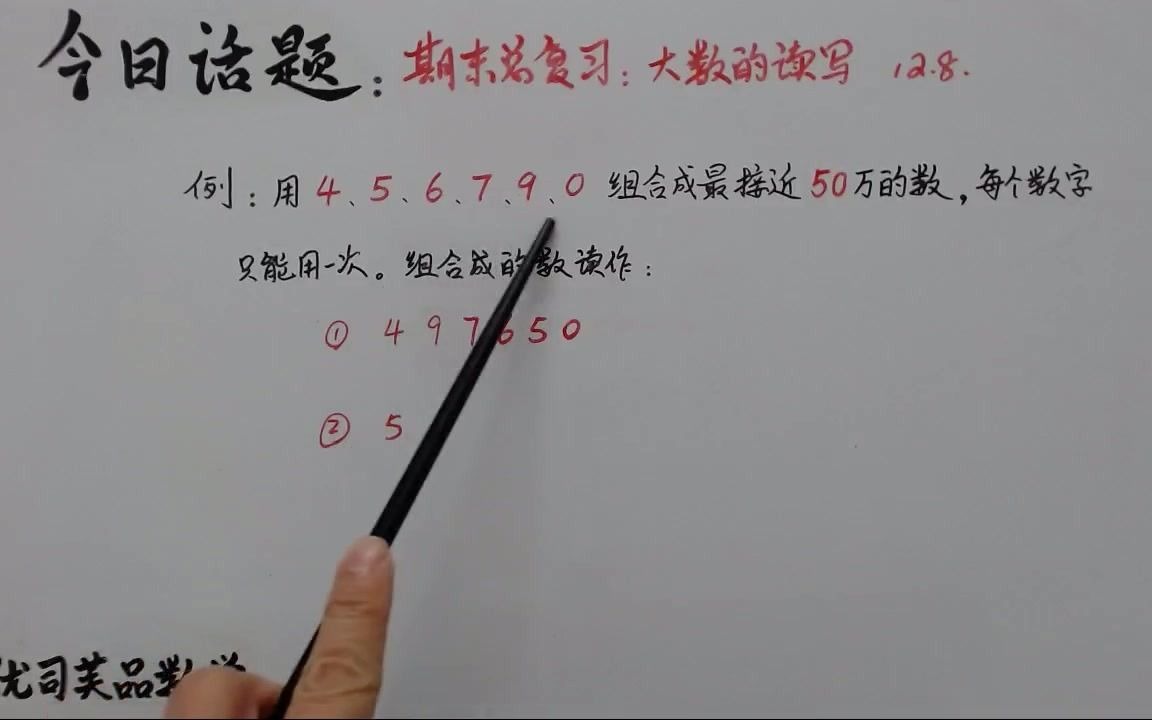 今日话题：期末总复习：大数的读写 12.8.
例：用 4、5、6、7、9、0 组合成最接近50万的数，每个数字
只能用一次。组合成的数读作：
① 4 9 7 6 5 0
② 5
优司芙品数学